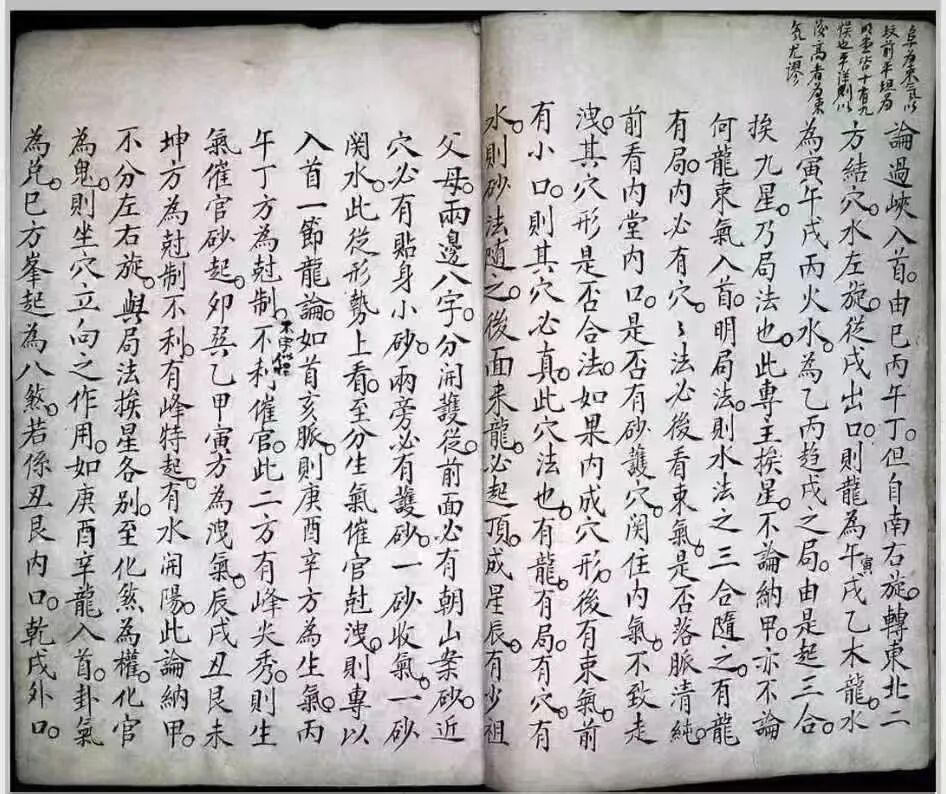 阜為束氣以
坟前平坦為
明堂皆十有九
悞也平洋則以
後高者為束
气尤謬
論過峽入首。由巳丙午丁。但自南右旋。轉東北二
方結穴。水左旋。從戌出口。則龍為午寅戌乙木龍。水
為寅午戌丙火水。為乙丙趋戌之局。由是起三合。
挨九星。乃局法也。此專主挨星。不論納甲。亦不論
何龍束氣入首。明局法。則水法之三合隨之。有龍
有局。內必有穴。〻法必後看束氣。是否落脈清純。
前看内堂内口。是否有砂護穴。関住内氣。不致走
洩。其穴形是否合法。如果內成穴形。後有束氣。前
有小口。則其穴必真。此穴法也。有龍。有局。有穴。有
水。則砂法随之。後面来龍。必起頂。成星辰。有少祖
父母。兩邊八字。分開護從。前面必有朝山案砂。近
穴必有貼身小砂。兩旁必有護砂。一砂收氣。一砂
関水。此從形勢上看。至分生氣催官尅洩。則專以
入首一節龍論。如首亥脈。則庚酉辛方為生氣。丙
午丁方為尅制。不利催官。此二方有峰尖秀。則生
氣催官砂起。卯巽乙甲寅方為洩氣。辰戌丑艮未
坤方為尅制不利。有峰特起。有水開陽。此論納甲。
不分左右旋。與局法挨星各別。至化煞為權。化官
為鬼。則坐穴立向之作用。如庚酉辛龍入首。卦氣
為兌。巳方峯起為八煞。若係丑艮内口。乾戌外口。